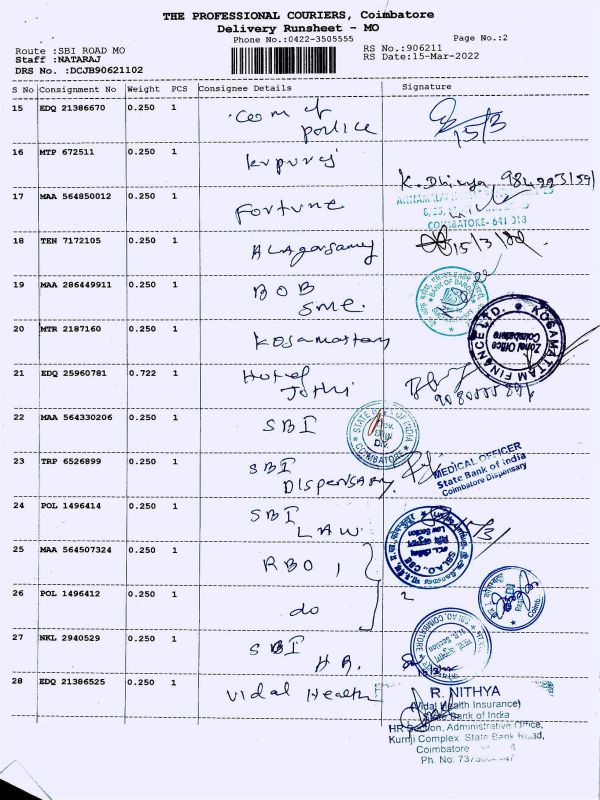 THE PROFESSIONAL COURIERS, Coimbatore
Delivery Runsheet - MO
Phone No.:0422-3505555
Page No.:2
Route :SBI ROAD MO
RS No.:906211
Staff :NATARAJ
RS Date:15-Mar-2022
DRS No. :DCJB90621102
S No Consignment No Weight PCS Consignee Details Signature
15 EDQ 21386670 0.250 1 com of police 15/3
16 MTP 672511 0.250 1
K. Dhivya
17 MAA 564850012 0.250 1 Fortune
COIMBATORE- 641 013
18 TEN 7172105 0.250 1 Alagarsamy 15/3/22
19 MAA 286449911 0.250 1 BOB SME.
BANK OF BARODA
20 MTR 2187160 0.250 1
KOSAMATTAM FINANCE LTD.
Zonal Office
Coimbatore
21 EDQ 25960781 0.722 1 Hotel Jothi
22 MAA 564330206 0.250 1 SBI
STATE BANK OF INDIA
COIMBATORE
23 TRP 6526899 0.250 1 SBI DISPENSARY.
MEDICAL OFFICER
State Bank of India
Coimbatore Dispensary
24 POL 1496414 0.250 1 SBI LAW.
Law Section
25 MAA 564507324 0.250 1 RBO 1
26 POL 1496412 0.250 1 do 2
27 NKL 2940529 0.250 1 SBI HR.
28 EDQ 21386525 0.250 1 Vidal Health
R. NITHYA
(Vidal Health Insurance)
State Bank of India
HR Section, Administrative Office,
Kurnji Complex, State Bank Road,
Coimbatore
Ph. No: